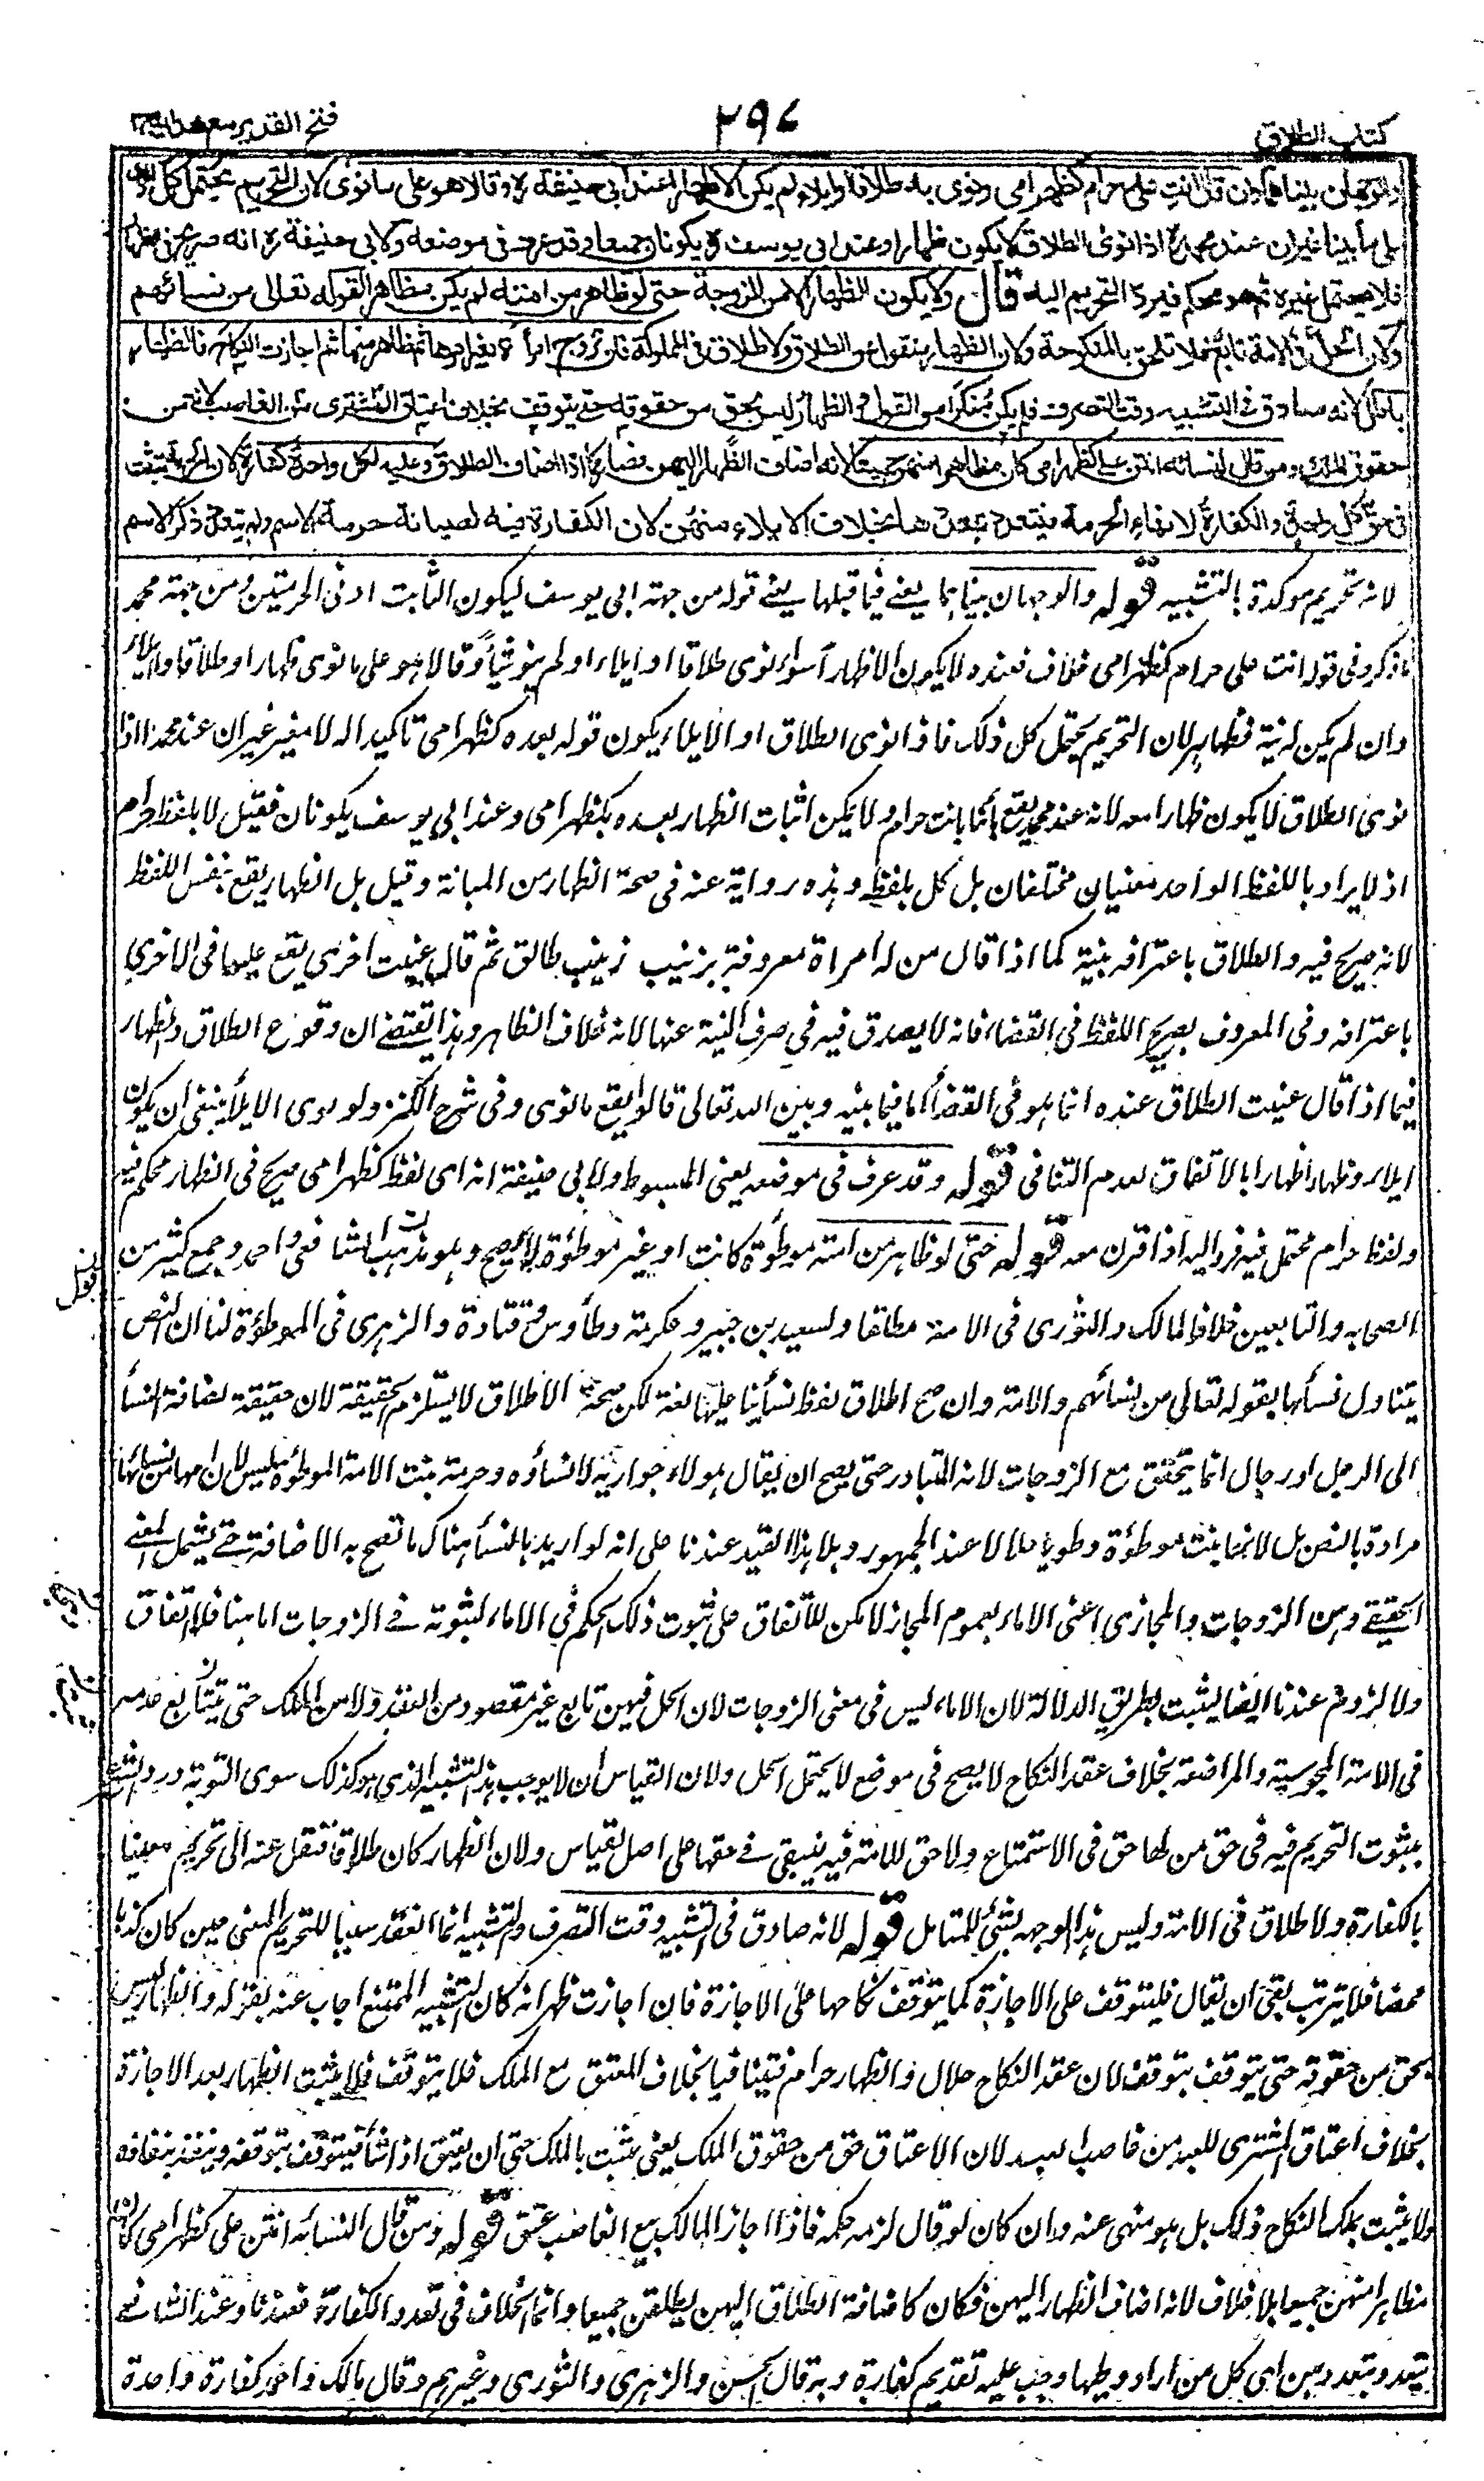 كتاب الطلاق
٢٩٤
فتح القدير مع هداية
والوجهان بيناهما وان قال انت على حرام كظهر امى ونوى به طلاقا او ايلاء لم يكن الا ظهارا عند ابى حنيفة ره وقالا هو على ما نوى لان التحريم يحتمل كل ذلك
على ما بينا غير ان عند محمد ره اذا نوى الطلاق لا يكون ظهارا وعند ابى يوسف ره يكونان جميعا وقد عرف فى موضعه ولابى حنيفة ره انه صريح فى الظهار
فلا يحتمل غيره ثم هو محكم فيرد التحريم اليه قال ولا يكون الظهار الا من الزوجة حتى لو ظاهر من امته لم يكن مظاهرا لقوله تعالى من نسائهم
ولان الحل فى الامة تابع فلا تلحق بالمنكوحة ولان الظهار منقول عن الطلاق ولا طلاق فى المملوكة فان تزوج امرأة بغير امرها ثم ظاهر منها ثم اجازت النكاح فالظهار
باطل لانه صادق فى التشبيه وقت التصرف فلم يكن منكرا من القول والظهار ليس بحق من حقوقه حتى يتوقف بخلاف اعتاق المشترى من الغاصب لانه من
حقوق الملك ومن قال لنسائه انتن على كظهر امى كان مظاهرا منهن جميعا لانه اضاف الظهار اليهن فصار كما اذا اضاف الطلاق وعليه لكل واحدة كفارة لان الحرمة تثبت
فى حق كل واحدة والكفارة لانهاء الحرمة فيتعدد بتعددها بخلاف الايلاء منهن لان الكفارة فيه لصيانة حرمة الاسم ولم يتعدد ذكر الاسم
لانه تحريم موكدة بالتشبيه قوله والوجهان بيناهما يعنى فيما قبلها يعنى قوله من جهة ابى يوسف ليكون الثابت ادنى الحرمتين ومن جهة محمد
ما ذكر وفى قوله انت على حرام كظهر امى خلاف فعنده لا يكون الا ظهارا سواء نوى طلاقا او ايلاء او لم ينو شيأ وقالا هو على ما نوى ظهارا او طلاقا او ايلاء
وان لم يكن له نية فظهار لان التحريم يحتمل كل ذلك فاذا نوى الطلاق او الايلاء يكون قوله بعده كظهر امى تاكيدا له لا مغير غير ان عند محمد اذا
نوى الطلاق لا يكون ظهارا معه لانه عند محمد يقع بائنا بانت حرام ولا يمكن اثبات الظهار بعده بكظهر امى وعند ابى يوسف يكونان فقيل لا بلفظ حرام
اذ لا يراد باللفظ الواحد معنيان مختلفان بل كل بلفظ وهذه رواية عنه فى صحة الظهار من المبانة وقيل بل الظهار يقع بنفس اللفظ
لانه صريح فيه والطلاق باعترافه بنية كما اذا قال من له امراة معروفة بزينب زينب طالق ثم قال عنيت اخرى يقع عليها فى الاخرى
باعترافه وفى المعروف بصريح اللفظ فى القضاء فانه لا يصدق فيه فى صرف النية عنها لانه خلاف الظاهر وهذا يقتضى ان وقوع الطلاق والظهار
فيما اذا قال عنيت الطلاق عنده انما هو فى القضاء اما فيما بينه وبين الله تعالى قالوا يقع ما نوى وفى شرح الكنز ولو نوى الايلاء ينبغى ان يكون
ايلاء وظهارا ظهارا بالاتفاق لعدم التنافى قوله وقد عرف فى موضعه يعنى المبسوط ولابى حنيفة انه اى لفظ كظهر امى صريح فى الظهار محكم فيه
ولفظ حرام محتمل فيه فرد اليه اذا قرن معه قوله حتى لو ظاهر من امته موطوءة كانت او غير موطوءة لا يصح وهو مذهب الشافعى واحمد وجمع كثير من
الصحابة والتابعين خلافا لمالك والثورى فى الامة مطلقا ولسعيد بن جبير وعكرمة وطاوس وقتادة والزهرى فى الموطوءة لنا ان النص
يتناول نساءنا بقوله تعالى من نسائهم والامة وان صح اطلاق لفظ نسائنا عليها لغة لكن صحة الاطلاق لا يستلزم الحقيقة لان حقيقة اضافة النسأ
الى الرجل او رجال انما يتحقق مع الزوجات لانه المتبادر حتى يصح ان يقال هولاء جواريه لا نساؤه وحرمة بنت الامة الموطوءة ليس لان امها من نسائنا
مرادة بالنص بل لانها بنت موطوءة وطويا حلالا عند الجمهور وبلا هذا القيد عندنا على انه لو اريد بالنسأ هناك ما تصح به الاضافة حتى يشمل المعنى
الحقيقى وهن الزوجات والمجازى اعنى الاماء بعموم المجاز لا مكن للاتفاق على ثبوت ذلك الحكم فى الاماء لثبوته فى الزوجات اما هنا فلا اتفاق
ولا لزوم عندنا ايضا ليثبت بطريق الدلالة لان الاماء ليس فى معنى الزوجات لان الحل فيهن تابع غير مقصود من العقد ولا من الملك حتى يثبتا مع عدمه
فى الامة المجوسية والمراضعة بخلاف عقد النكاح لا يصح فى موضع لا يحتمل الحل ولان القياس ان لا يوجب هذا التشبيه الذى هو كذلك سوى التوبة ورد الشرع
بثبوت التحريم فيه فى حق من لها حق فى الاستمتاع ولا حق للامة فيه فيبقى فى حقها على اصل القياس ولان الظهار كان طلاقا فنقل عنه الى تحريم مغيا
بالكفارة ولا طلاق فى الامة وليس هذا الوجه بشئ للمتامل قوله لانه صادق فى التشبيه وقت التصرف والتشبيه انما انعقد سببا للتحريم المغيى حين كان كذبا
محضا فلا يترتب بقى ان يقال فليتوقف على الاجازة كما يتوقف نكاحها على الاجازة فان اجازت ظهر انه كان التشبيه الممتنع اجاب عنه بقوله والظهار ليس
بحق من حقوقه حتى يتوقف بتوقفه لان عقد النكاح حلال والظهار حرام فتنافيا بخلاف العتق مع الملك فلا يتوقف فلا يثبت الظهار بعد الاجازة
بخلاف اعتاق المشترى للعبد من غاصب العبد لان الاعتاق حق من حقوق الملك يعنى يثبت بالملك حتى ان يعتق اذا شأ فيتوقف بتوقفه وينفذ بنفاذه
ولا يثبت بملك النكاح ذلك بل هو منهى عنه وان كان لو قال لزمه حكمه فاذا اجاز المالك بيع الغاصب عتق قوله ومن قال لنسائه انتن على كظهر امى كان
مظاهرا منهن جميعا بلا خلاف لانه اضاف الظهار اليهن فكان كاضافة الطلاق اليهن يطلقن جميعا وانما الخلاف فى تعدد الكفارة فعندنا وعند الشافعى
يتعدد بتعددهن اى كل من اراد وطيها وجب عليه تقديم كفارة وبه قال الحسن والزهرى والثورى وغيرهم وقال مالك واحمد كفارة واحدة